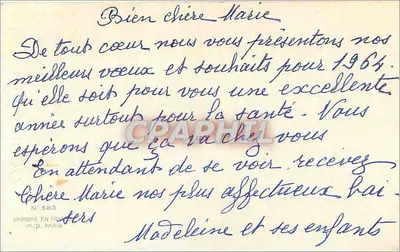 Bien chère Marie
De tout cœur nous vous présentons nos
meilleurs vœux et souhaits pour 1964.
Qu'elle soit pour vous une excellente
année surtout pour la santé. Vous
esperons que ça va chez vous
En attendant de se voir recevez
Chère Marie nos plus affectueux bai-
sers
Madeleine et ses enfants
CPARPHIL
N° 583
IMPRIMÉ EN FRANCE
M.D. PARIS